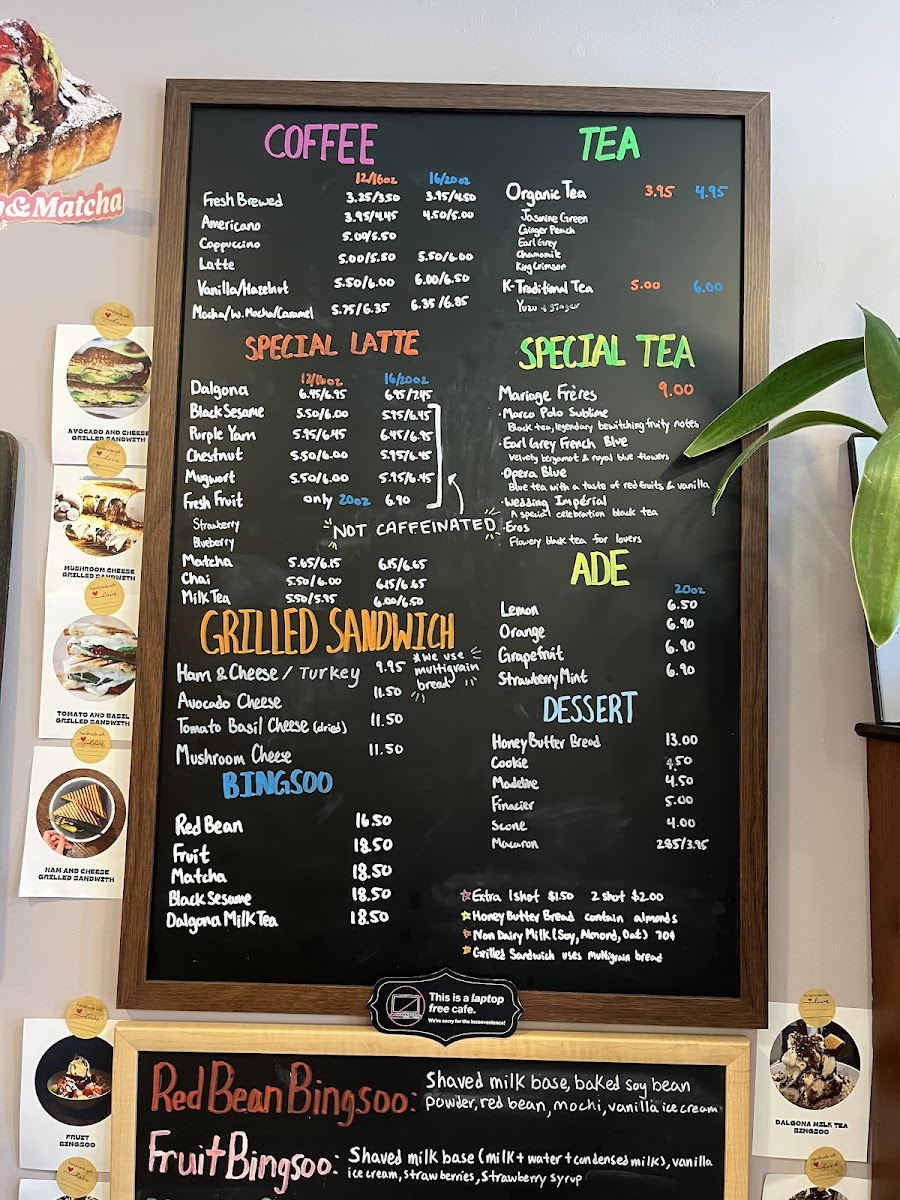 &Matcha
COFFEE
12/16oz 16/20oz
Fresh Brewed 3.25/3.50 3.95/4.50
Americano 3.95/4.45 4.50/5.00
Cappuccino 5.00/5.50
Latte 5.00/5.50 5.50/6.00
Vanilla/Hazelnut 5.50/6.00 6.00/6.50
Mocha/W.Mocha/Caramel 5.75/6.35 6.35/6.85
SPECIAL LATTE
12/16oz 16/20oz
Dalgona 6.95/6.95 6.95/7.45
Black Sesame 5.50/6.00 5.95/6.45
Purple Yam 5.95/6.45 6.45/6.95
Chestnut 5.50/6.00 5.95/6.45
Mugwort 5.50/6.00 5.95/6.45
Fresh Fruit only 20oz 6.90
Strawberry
Blueberry
NOT CAFFEINATED
Matcha 5.65/6.15 6.15/6.65
Chai 5.50/6.00 6.15/6.65
Milk Tea 5.50/5.95 6.00/6.50
GRILLED SANDWICH
Ham & Cheese / Turkey 9.95
*We use
multigrain
bread
Avocado Cheese 11.50
Tomato Basil Cheese (dried) 11.50
Mushroom Cheese 11.50
BINGSOO
Red Bean 16.50
Fruit 18.50
Matcha 18.50
Black Sesame 18.50
Dalgona Milk Tea 18.50
TEA
Organic Tea 3.95 4.95
Jasmine Green
Ginger Peach
Earl Grey
Chamomile
King Crimson
K-Traditional Tea 5.00 6.00
Yuzu
SPECIAL TEA
Mariage Frères 9.00
·Marco Polo Sublime
Black tea, legendary bewitching fruity notes
·Earl Grey French Blue
Velvety bergamot & royal blue flowers
·Opera Blue
Blue tea with a taste of red fruits & vanilla
·Wedding Impérial
A special celebration black tea
·Eros
Flowery black tea for lovers
ADE
20oz
Lemon 6.50
Orange 6.90
Grapefruit 6.90
Strawberry Mint 6.90
DESSERT
Honey Butter Bread 13.00
Cookie 4.50
Madeline 4.50
Finacier 5.00
Scone 4.00
Macaron 2.85/3.95
Extra 1 shot $1.50 2 shot $2.00
Honey Butter Bread contain almonds
Non Dairy Milk (Soy, Almond, Oat) 70¢
Grilled Sandwich uses multigrain bread
This is a laptop
free cafe.
We're sorry for the inconvenience!
Red Bean Bingsoo: Shaved milk base, baked soy bean
powder, red bean, mochi, vanilla ice cream
Fruit Bingsoo: Shaved milk base (milk + water + condensed milk), vanilla
ice cream, strawberries, strawberry syrup
AVOCADO AND CHEESE
GRILLED SANDWITH
MUSHROOM CHEESE
GRILLED SANDWITH
TOMATO AND BASIL
GRILLED SANDWITH
HAM AND CHEESE
GRILLED SANDWITH
FRUIT
BINGSOO
DALGONA MILK TEA
BINGSOO